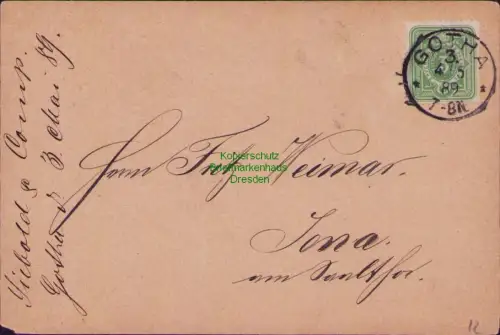 Siebold & Comp.
Gotha d 3 Mai 89.
GOTHA
3.
4 5
89
7-8N.
Herrn Fritz Weimar.
Jena.
am Saalthor.
Kopierschutz
Briefmarkenhaus
Dresden
12